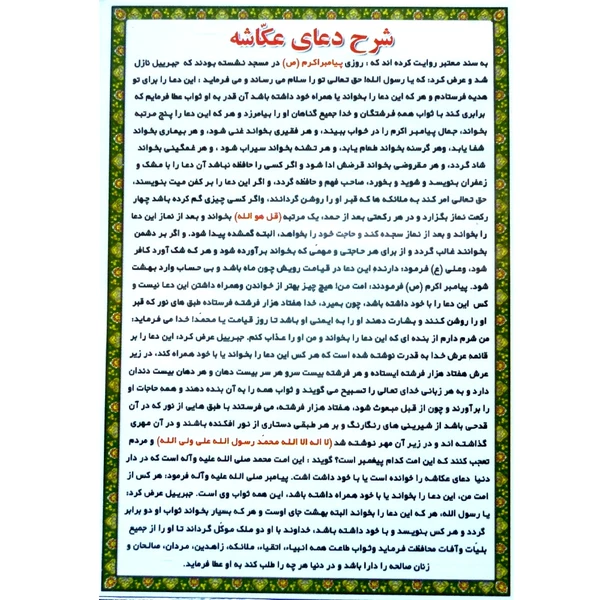 شرح دعای عکّاشه
به سند معتبر روایت کرده اند که : روزی پیامبر اکرم (ص) در مسجد نشسته بودند که جبرییل نازل
شد و عرض کرد: که یا رسول الله! حق تعالی تو را سلام می رساند و می فرماید : این دعا را برای تو
هدیه فرستادم و هر که این دعا را بخواند یا همراه خود داشته باشد آن قدر به او ثواب عطا فرمایم که
برابری کند با ثواب همه فرشتگان و خدا جمیع گناهان او را بیامرزد و هر که این دعا را پنج مرتبه
بخواند، جمال پیامبر اکرم را در خواب ببیند، و هر فقیری بخواند غنی شود، و هر بیماری بخواند
شفا یابد، وهر گرسنه بخواند طعام یابد، و هر تشنه بخواند سیراب شود ، و هر غمگینی بخواند
شاد گردد، و هر مقروضی بخواند قرضش ادا شود و اگر کسی را حافظه نباشد آن دعا را با مشک و
زعفران بنویسد و شوید و بخورد، صاحب فهم و حافظه گردد، و اگر این دعا را بر کفن میت بنویسند،
حق تعالی امر کند به ملائکه ها که قبر او را روشن گردانند، واگر کسی چیزی گم کرده باشد چهار
رکعت نماز بگزارد و در هر رکعتی بعد از حمد، یک مرتبه(قل هو الله) بخواند و بعد از نماز این دعا
را بخواند و بعد از نماز سجده کند و حاجت خود را بخواهد، البته گمشده پیدا شود. و اگر بر دشمن
بخوانند غالب گردد و از برای هر حاجتی و مهمّی که بخواند برآورده شود و هر که شک آورد کافر
شود، وعلی (ع) فرمود: دارنده این دعا در قیامت رویش چون ماه باشد و بی حساب وارد بهشت
شود. پیامبر اکرم (ص) فرمودند: امت من! هیچ چیز بهتر از خواندن وهمراه داشتن این دعا نیست و
کس این دعا را با خود داشته باشد، چون بمیرد، خدا هفتاد هزار فرشته فرستاده طبق های نور که قبر
او را روشن کنند و بشارت دهند او را به ایمنی او باشد تا روز قیامت یا محمّد! خدا می فرماید:
من شرم دارم از بنده ای که این دعا را بخواند و من او را عذاب کنم. جبرییل عرض کرد: این دعا را بر
قائمه عرش خدا به قدرت نوشته شده است که هر کس این دعا را بخواند یا با خود همراه کند، در زیر
عرش هفتاد هزار فرشته ایستاده و هر فرشته بیست سرو هر سر بیست دهان و هر دهان بیست دندان
دارد و به هر زبانی خدای تعالی را تسبیح می گویند و ثواب همه را به آن بنده دهند و همه حاجات او
را برآورند و چون از قبل مبعوث شود، هفتاد هزار فرشته، می فرستند با طبق هایی از نور که در آن
قدحی باشد از شیرینی های رنگارنگ و بر هر طبقی دستاری از نور افکنده باشند و در آن مهری
گذاشته اند و در زیر آن مهر نوشته شد(لا اله الا الله محمّد رسول الله علی ولی الله) و مردم
تعجب کنند که این امت کدام پیغمبر است؟ گویند : این امت محمد صلی الله علیه وآله است که در دار
دنیا دعای عکاشه را خوانده است یا با خود داشت است. پیامبر صلی الله علیه وآله فرمود: هر کس از
امت من، این دعا را بخواند یا با خود همراه داشته باشد، این همه ثواب وی است. جبرییل عرض کرد:
یا رسول الله، هر که این دعا را بخواند البته بهشت جای اوست و هر که بسیار بخواند ثواب او دو برابر
گردد و هر کس بنویسد و با خود داشته باشد، خداوند با او دو ملک موکّل گرداند تا او را از جمیع
بلیّات وآفات محافظت فرماید وثواب طاعت همه انبیاء، اتقیاء، ملائکه، زاهدین، مردان، صالحان و
زنان صالحه را دارا باشد و در دنیا هر چه را طلب کند به او عطا فرماید.